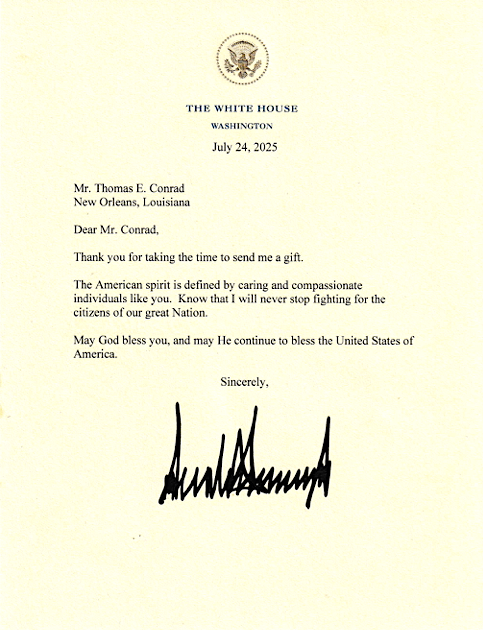 THE WHITE HOUSE
WASHINGTON
July 24, 2025
Mr. Thomas E. Conrad
New Orleans, Louisiana
Dear Mr. Conrad,
Thank you for taking the time to send me a gift.
The American spirit is defined by caring and compassionate
individuals like you.  Know that I will never stop fighting for the
citizens of our great Nation.
May God bless you, and may He continue to bless the United States of
America.
Sincerely,